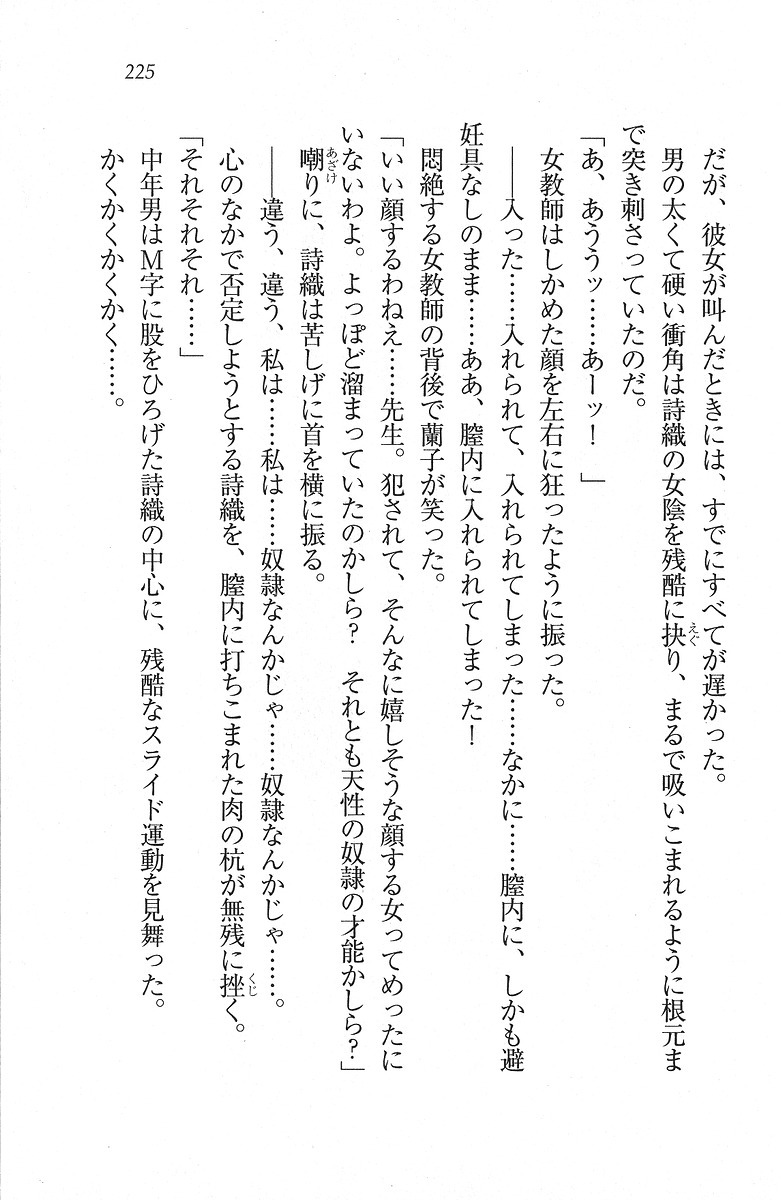 225
だが、彼女が叫んだときには、すでにすべてが遅かった。
男の太くて硬い衝角は詩織の女陰を残酷に抉り、まるで吸いこまれるように根元ま
で突き刺さっていたのだ。
「あ、あううッ……あーッ！　」
女教師はしかめた顔を左右に狂ったように振った。
――入った……入れられて、入れられてしまった……なかに……膣内に、しかも避
妊具なしのまま……ああ、膣内に入れられてしまった！
悶絶する女教師の背後で蘭子が笑った。
「いい顔するわねえ……先生。犯されて、そんなに嬉しそうな顔する女ってめったに
いないわよ。よっぽど溜まっていたのかしら？　それとも天性の奴隷の才能かしら？」
嘲りに、詩織は苦しげに首を横に振る。
――違う、違う、私は……私は……奴隷なんかじゃ……奴隷なんかじゃ……。
心のなかで否定しようとする詩織を、膣内に打ちこまれた肉の杭が無残に挫く。
「それそれそれ……」
中年男はM字に股をひろげた詩織の中心に、残酷なスライド運動を見舞った。
かくかくかくかく……。